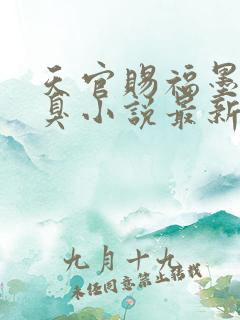 天官赐福墨
真小说最新
九月十九
未经同意禁止转载